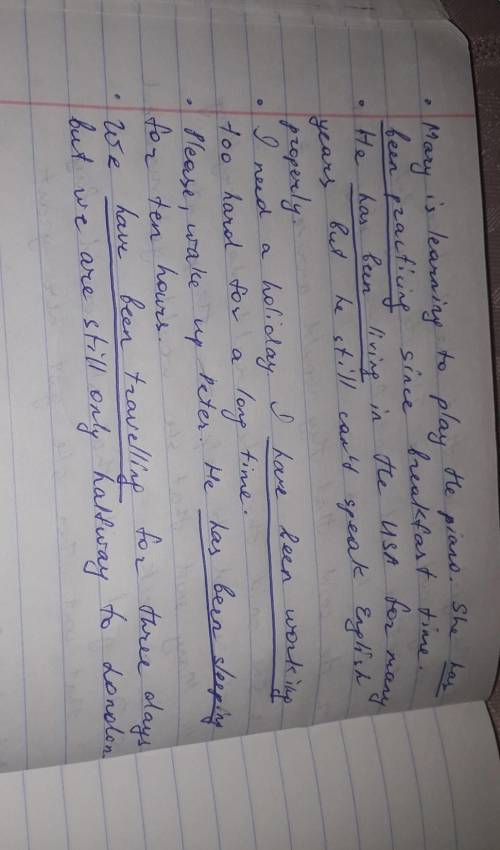 • Mary is learning to play the piano. She has
been practicing since breakfast time.
• He has been living in the USA for many
years but he still can't speak English
properly.
• I need a holiday. I have been working
too hard for a long time.
• Please, wake up Peter. He has been sleeping
for ten hours.
• We have been travelling for three days
but we are still only halfway to London.